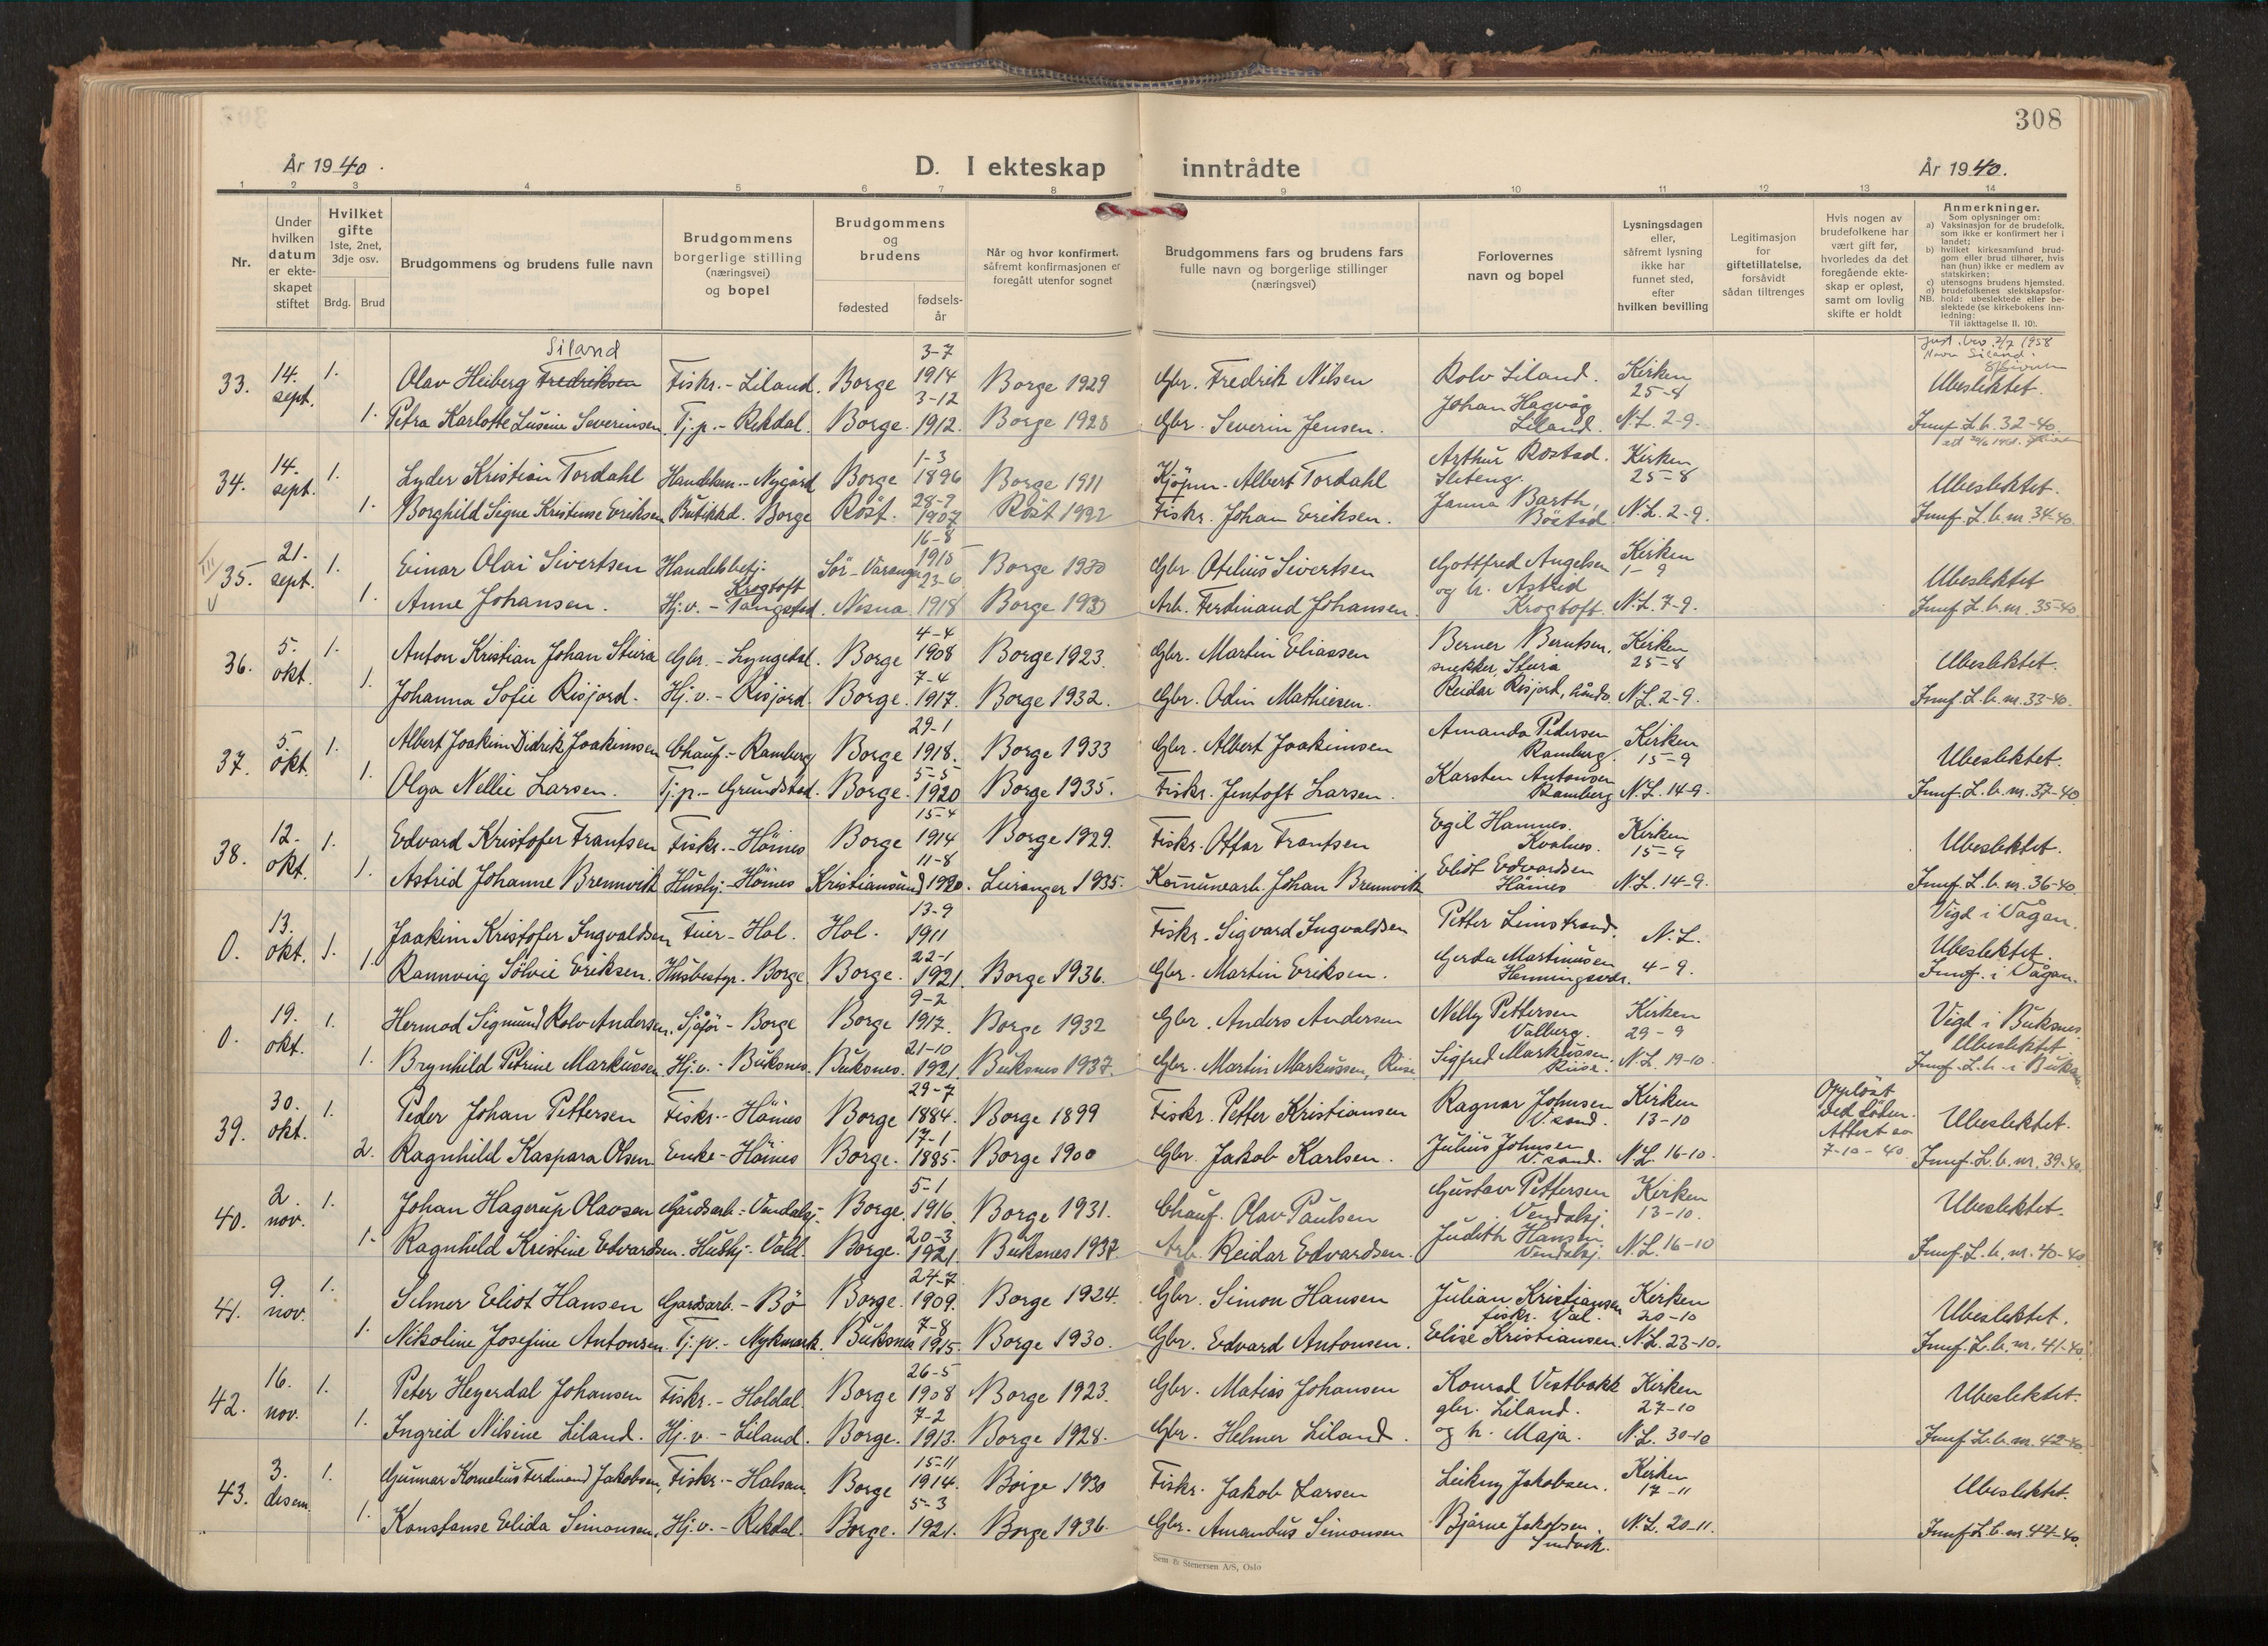 308
År 1940.
D. I ekteskap inntrådte
År 1940.
1 2 3 4 5 6 7 8 9 10 11 12 13 14
Nr.
Under hvilken datum er ekteskapet stiftet
Hvilket gifte 1ste, 2net, 3dje osv.
Brdg. Brud
Brudgommens og brudens fulle navn
Brudgommens borgerlige stilling (næringsvei) og bopel
Brudgommens og brudens
fødested
fødsels-år
Når og hvor konfirmert,
såfremt konfirmasjonen er
foregått utenfor sognet
Brudgommens fars og brudens fars
fulle navn og borgerlige stillinger
(næringsvei)
Forlovernes
navn og bopel
Lysningsdagen
eller,
såfremt lysning
ikke har
funnet sted,
efter
hvilken bevilling
Legitimasjon
for
giftetillatelse,
forsåvidt
sådan tiltrenges
Hvis nogen av
brudefolkene har
vært gift før,
hvorledes da det
foregående ekte-
skap er opløst,
samt om lovlig
skifte er holdt
Anmerkninger.
Som oplysninger om:
a) Vaksinasjon for de brudefolk,
som ikke er konfirmert her i
landet;
b) hvilket kirkesamfund brud-
gom eller brud tilhører, hvis
han (hun) ikke er medlem av
statskirken;
c) utensogns brudens hjemsted.
d) brudefolkenes slektskapsfor-
NB. hold: ubeslektede eller be-
slektede (se kirkebokens inn-
ledning:
Til iakttagelse II. 10).
33. 14. sept. 1. Olav Heiberg Fredriksen Liland Fiskr. - Liland. Borge 3-7 1914 Borge 1929 Gbr. Fredrik Nilsen Rolv Liland. Kirken 25-8 Ubeslektet.
1. Petra Karlotte Lusine Severinsen. Tj.p. - Rekdal. Borge. 3-12 1912. Borge 1928 Gbr. Severin Jensen. Johan Hagvåg Liland. N.L. 2-9. Innf. L.b. 32-40.
34. 14. sept. 1. Lyder Kristian Tordahl Handelsm. - Nygård Borge 1-3 1896 Borge 1911 Kjöpm. Albert Tordahl Arthur Rostad. Kirken 25-8 Ubeslektet.
1. Borghild Signe Kristense Eriksen Butikkd. Borge Röst. 28-9 1907 Röst 1922 Fiskr. Johan Eriksen. Janna Barth, Böstad N.L. 2-9. Innf. L.b. nr. 34-40.
35. 21. sept. 1. Einar Olai Sivertsen Handelsbetj. Sör-Varanger 16-8 1915 Borge 1930 Gbr. Otilius Sivertsen Gottfred Angelsen Kirken 1-9 Ubeslektet
1. Anne Johansen. Hj.v. - Tangstad Krogtoft. Nesna 23-6 1918 Borge 1933 Arb. Ferdinand Johansen. og h. Astrid Krogtoft. N.L. 7-9. Innf. L.b. nr. 35-40
36. 5. okt. 1. Anton Kristian Johan Steira Gbr. - Lyngedal. Borge 4-4 1908 Borge 1923. Gbr. Martin Eliassen Berner Berntsen, snekker, Steira Kirken 25-8 Ubeslektet.
1. Johanna Sofie Risjord. Hj.v. - Risjord. Borge. 7-4 1917. Borge 1932. Gbr. Odin Mathiesen. Reidar Risjord, N.L. 2-9. Innf. L.b. nr. 33-40.
37. 5. okt. 1. Albert Joakim Didrik Joakimsen Chauf. - Ramberg Borge 29-1 1918. Borge 1933 Gbr. Albert Joakimsen Amanda Pedersen Ramberg. Kirken 15-9 Ubeslektet.
1. Olga Nellie Larsen. Tj.p. - Grundstad. Borge. 5-5 1920 Borge 1935. Fiskr. Jentoft Larsen. Karsten Antonsen Ramberg N.L. 14-9. Innf. L.b. nr. 37-40
38. 12. okt. 1. Edvard Kristofer Frantsen Fiskr. - Höines Borge 15-4 1914 Borge 1929. Fiskr. Ottar Frantsen Egil Hamnes. Kvalnes. Kirken 15-9 Ubeslektet.
1. Astrid Johanne Brennvik Hushj. - Höines Kristiansund 11-8 1920. Leiranger 1935. Komunearb. Johan Brennvik Eliot Edvardsen Höines N.L. 14-9. Innf. L.b. nr. 36-40.
0. 13. okt. 1. Joakim Kristofer Ingvaldsen Hol. Hol. 13-9 1911 Fiskr. Sigvard Ingvaldsen Petter Limstrand. N.L. 4-9. Vigd i Vågan.
1. Rannveig Sölvie Eriksen. Husbestyr. Borge Borge. 22-1 1921. Borge 1936. Gbr. Martin Eriksen. Gerda Martinusen Henningsvær. Ubeslektet. Innf. i Vågan.
0. 19. okt. 1. Hermod Sigmund Rolv Andersen. Sjåför - Borge Borge 9-2 1917. Borge 1932 Gbr. Anders Andersen Nelly Pettersen Valberg. Kirken 29-9 Vigd i Buksnes
1. Brynhild Petrine Markussen Hj.v. - Buksnes. Buksnes. 21-10 1921. Buksnes 1937. Gbr. Martin Markussen, Ruse Sigfred Markussen Ruse. N.L. 19-10. Ubeslektet Innf. L.b. i Buksn.
39. 30. okt. 1. Peder Johan Pettersen Fiskr. - Höines Borge 29-7 1884. Borge 1899 Fiskr. Petter Kristiansen Ragnar Johnsen V.sand. Kirken 13-10 Opplöst ved döden. Ubeslektet.
2. Ragnhild Kaspara Olsen. Enke - Höines Borge. 17-1 1885. Borge 1900 Gbr. Jakob Karlsen. Julius Johnsen V.sand. N.L. 16-10. Attest av 7-10-40. Innf. L.b. nr. 39-40.
40. 2. nov. 1. Johan Hagerup Olavsen Gårdsarb. - Vendalsj. Borge. 5-1 1916. Borge 1931. Chauf. Olav Paulsen Gustav Pettersen Vendalsj. Kirken 13-10. Ubeslektet.
1. Ragnhild Kristine Edvardsen. Hushj. - Vold. Borge. 20-3 1921. Buksnes 1937 Arb. Reidar Edvardsen. Judith Hansen, Vendalsj. N.L. 16-10 Innf. L.b. nr. 40-40
41. 9. nov. 1. Selmer Eliot Hansen Gårdsarb. - Bö Borge. 24-7 1909. Borge 1924. Gbr. Simon Hansen Julian Kristiansen fiskr. Kirken 20-10 Ubeslektet.
1. Nikoline Josefine Antonsen. Tj.p. - Nykmark. Buksnes 7-8 1915. Borge 1930. Gbr. Edvard Antonsen. Elise Kristiansen. N.L. 23-10. Innf. L.b. nr. 41-40.
42. 16. nov. 1. Peter Heyerdal Johansen Fiskr. - Holdal. Borge 26-5 1908 Borge 1923. Gbr. Matias Johansen Konrad Vestbakk gbr. Liland. Kirken 27-10 Ubeslektet.
1. Ingrid Nilsine Liland. Hj.v. - Liland. Borge. 7-2 1913. Borge 1928. Gbr. Helmer Liland. og h. Maja. N.L. 30-10 Innf. L.b. nr. 42-40.
43. 3. desem. 1. Gunnar Kornelius Ferdinand Jakobsen, Fiskr. - Halsan. Borge 15-11 1914. Borge 1930 Fiskr. Jakob Larsen Leikny Jakobsen. Kirken 17-11 Ubeslektet.
1. Konstanse Elida Simonsen. Hj.v. - Rekdal. Borge. 5-3 1921. Borge 1936. Gbr. Amandus Simonsen Bjarne Jakobsen. N.L. 20-11. Innf. L.b. nr. 44-40.
Sem & Stenersen A/S, Oslo